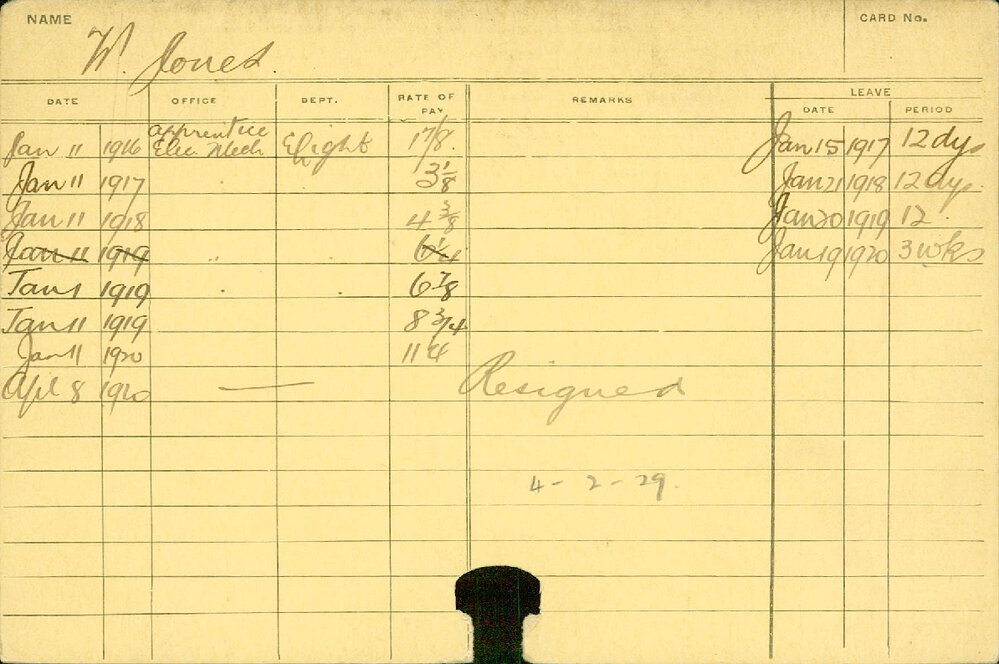 NAME W. Jones. CARD No.
LEAVE
DATE OFFICE DEPT. RATE OF PAY REMARKS DATE PERIOD
Jan 11 1916 apprentice Elec. Mech E/Light 1 7/8. Jan 15 1917 12 dys
Jan 11 1917 3 1/8 Jan 21 1918 12 dys.
Jan 11 1918 4 3/8 Jan 20 1919 12
Jan 11 1919 " 6 1/4 Jan 19 1920 3 wks
Jan 1 1919 6 7/8
Jan 11 1919 8 3/4
Jan 11 1920 11 4
Apl 8 1920 — Resigned
4 - 2 - 29.